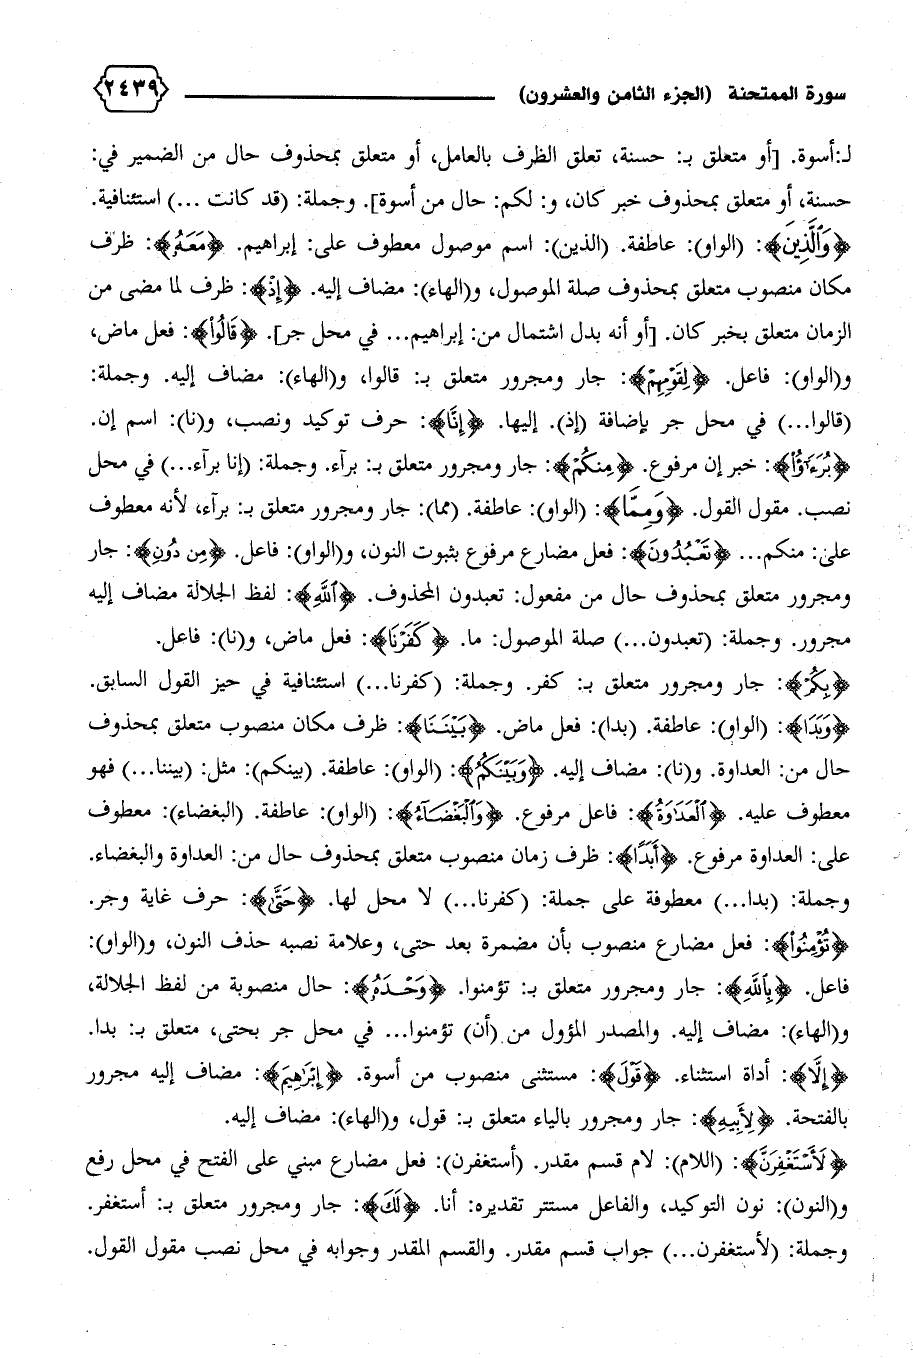 سورة الممتحنة (الجزء الثامن والعشرون) ٢٤٣٩
لـ:أسوة. [أو متعلق بـ: حسنة، تعلق الظرف بالعامل، أو متعلق بمحذوف حال من الضمير في:
حسنة، أو متعلق بمحذوف خبر كان، و: لكم: حال من أسوة]. وجملة: (قد كانت ...) استئنافية.
﴿وَٱلَّذِينَ﴾: (الواو): عاطفة. (الذين): اسم موصول معطوف على: إبراهيم. ﴿مَعَهُۥ﴾: ظرف
مكان منصوب متعلق بمحذوف صلة الموصول، و(الهاء): مضاف إليه. ﴿إِذْ﴾: ظرف لما مضى من
الزمان متعلق بخبر كان. [أو أنه بدل اشتمال من: إبراهيم... في محل جر]. ﴿قَالُوا۟﴾: فعل ماض،
و(الواو): فاعل. ﴿لِقَوْمِهِمْ﴾: جار ومجرور متعلق بـ: قالوا، و(الهاء): مضاف إليه. وجملة:
(قالوا...) في محل جر بإضافة (إذ). إليها. ﴿إِنَّا﴾: حرف توكيد ونصب، و(نا): اسم إن.
﴿بُرَءَٰٓؤُا۟﴾: خبر إن مرفوع. ﴿مِنكُمْ﴾: جار ومجرور متعلق بـ: برآء. وجملة: (إنا برآء...) في محل
نصب. مقول القول. ﴿وَمِمَّا﴾: (الواو): عاطفة. (مما): جار ومجرور متعلق بـ: برآء، لأنه معطوف
على: منكم... ﴿تَعْبُدُونَ﴾: فعل مضارع مرفوع بثبوت النون، و(الواو): فاعل. ﴿مِن دُونِ﴾: جار
ومجرور متعلق بمحذوف حال من مفعول: تعبدون المحذوف. ﴿ٱللَّهِ﴾: لفظ الجلالة مضاف إليه
مجرور. وجملة: (تعبدون...) صلة الموصول: ما. ﴿كَفَرْنَا﴾: فعل ماض، و(نا): فاعل.
﴿بِكُمْ﴾: جار ومجرور متعلق بـ: كفر. وجملة: (كفرنا...) استئنافية في حيز القول السابق.
﴿وَبَدَا﴾: (الواو): عاطفة. (بدا): فعل ماض. ﴿بَيْنَنَا﴾: ظرف مكان منصوب متعلق بمحذوف
حال من: العداوة. و(نا): مضاف إليه. ﴿وَبَيْنَكُمُ﴾: (الواو): عاطفة. (بينكم): مثل: (بيننا...) فهو
معطوف عليه. ﴿ٱلْعَدَٰوَةُ﴾: فاعل مرفوع. ﴿وَٱلْبَغْضَآءُ﴾: (الواو): عاطفة. (البغضاء): معطوف
على: العداوة مرفوع. ﴿أَبَدًا﴾: ظرف زمان منصوب متعلق بمحذوف حال من: العداوة والبغضاء.
وجملة: (بدا...) معطوفة على جملة: (كفرنا...) لا محل لها. ﴿حَتَّىٰ﴾: حرف غاية وجر.
﴿تُؤْمِنُوا۟﴾: فعل مضارع منصوب بأن مضمرة بعد حتى، وعلامة نصبه حذف النون، و(الواو):
فاعل. ﴿بِٱللَّهِ﴾: جار ومجرور متعلق بـ: تؤمنوا. ﴿وَحْدَهُۥٓ﴾: حال منصوبة من لفظ الجلالة،
و(الهاء): مضاف إليه. والمصدر المؤول من (أن) تؤمنوا... في محل جر بحتى، متعلق بـ: بدا.
﴿إِلَّا﴾: أداة استثناء. ﴿قَوْلَ﴾: مستثنى منصوب من أسوة. ﴿إِبْرَٰهِيمَ﴾: مضاف إليه مجرور
بالفتحة. ﴿لِأَبِيهِ﴾: جار ومجرور بالياء متعلق بـ: قول، و(الهاء): مضاف إليه.
﴿لَأَسْتَغْفِرَنَّ﴾: (اللام): لام قسم مقدر. (أستغفرن): فعل مضارع مبني على الفتح في محل رفع
و(النون): نون التوكيد، والفاعل مستتر تقديره: أنا. ﴿لَكَ﴾: جار ومجرور متعلق بـ: أستغفر.
وجملة: (لأستغفرن...) جواب قسم مقدر. والقسم المقدر وجوابه في محل نصب مقول القول.